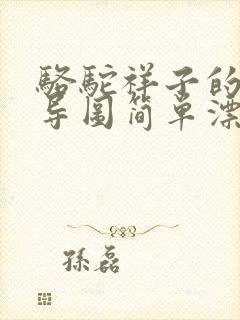 骆驼祥子的
导图简单漂
孙磊